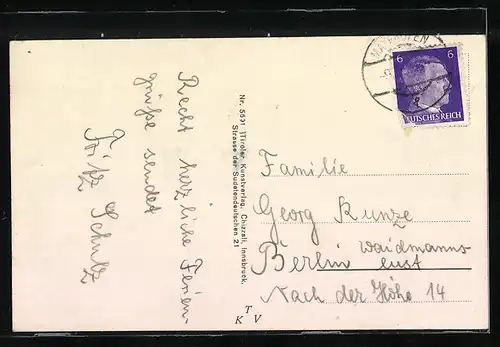 Recht herzliche Ferien-
grüße sendet
Fritz Schulz
Nr. 5531 Tiroler Kunstverlag, Chizzali, Innsbruck,
Strasse der Sudetendeutschen 21
T
K V
MAYRHOFEN
6 6
DEUTSCHES REICH
Familie
Georg Kunze
Berlin Waidmanns-
lust
Nach der Höhe 14